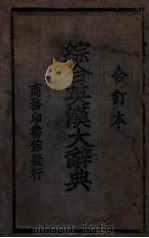 合訂本
綜合英漢大辭典
商務印書館發行